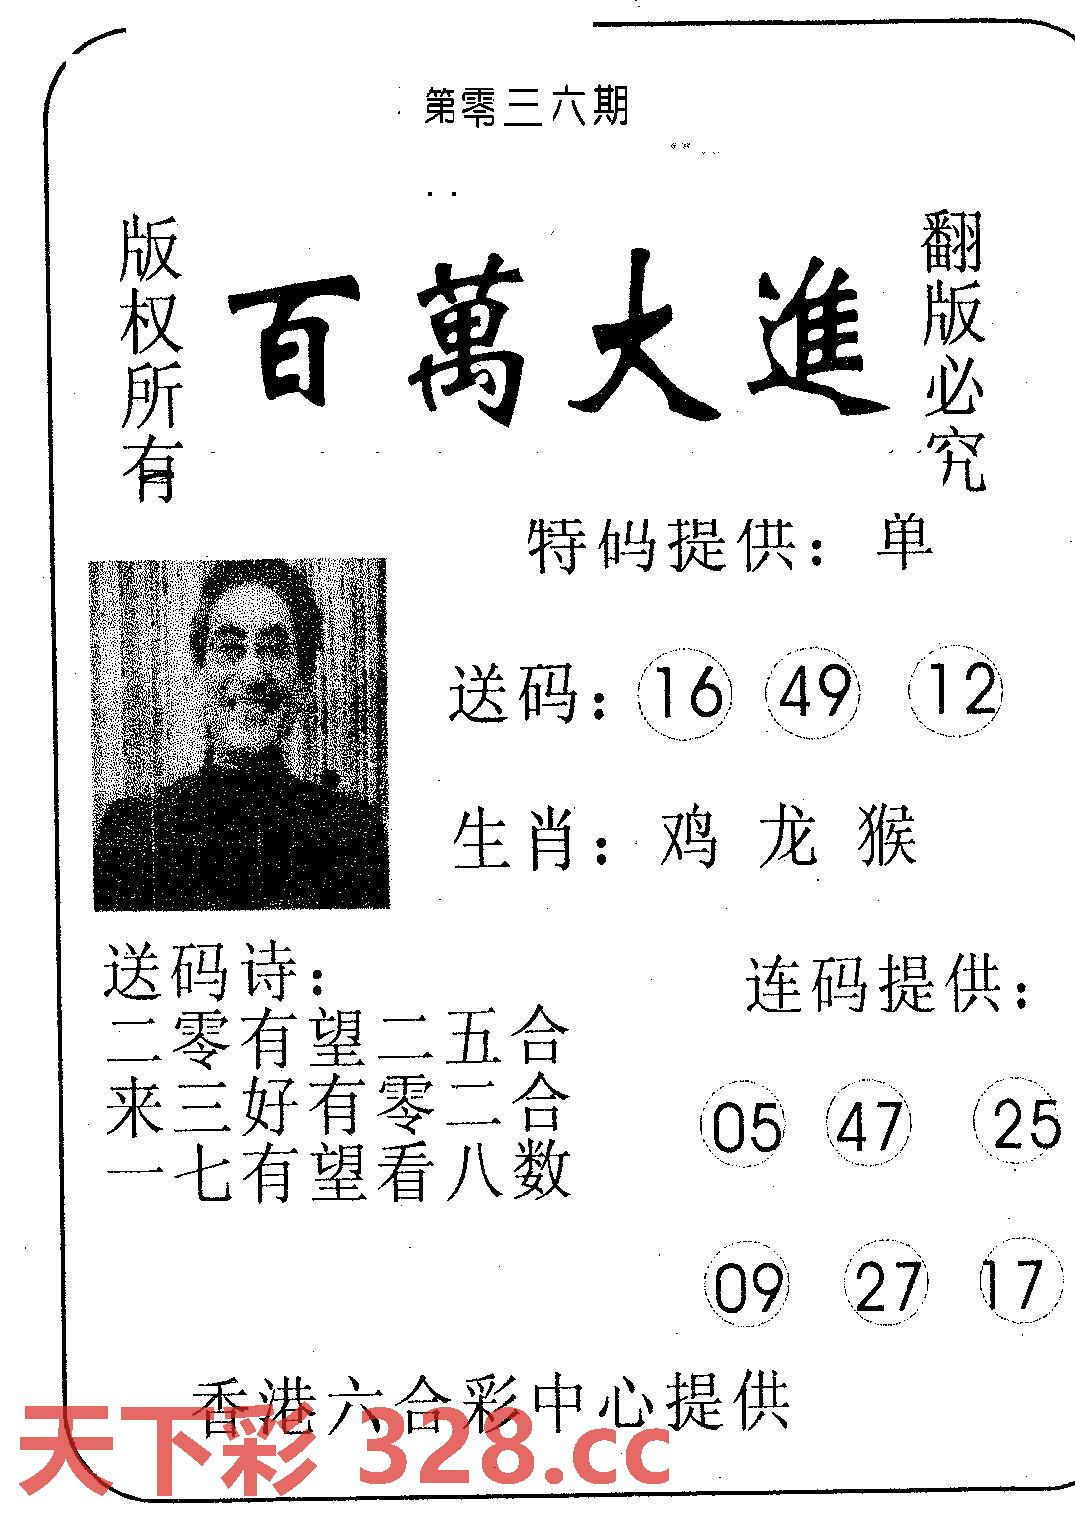 第零三六期
版权所有
百萬大進
翻版必究
特码提供：单
送码：16 49 12
生肖：鸡 龙 猴
送码诗：
二零有望二五合
来三好有零二合
一七有望看八数
连码提供：
05 47 25
09 27 17
香港六合彩中心提供
天下彩 328.cc